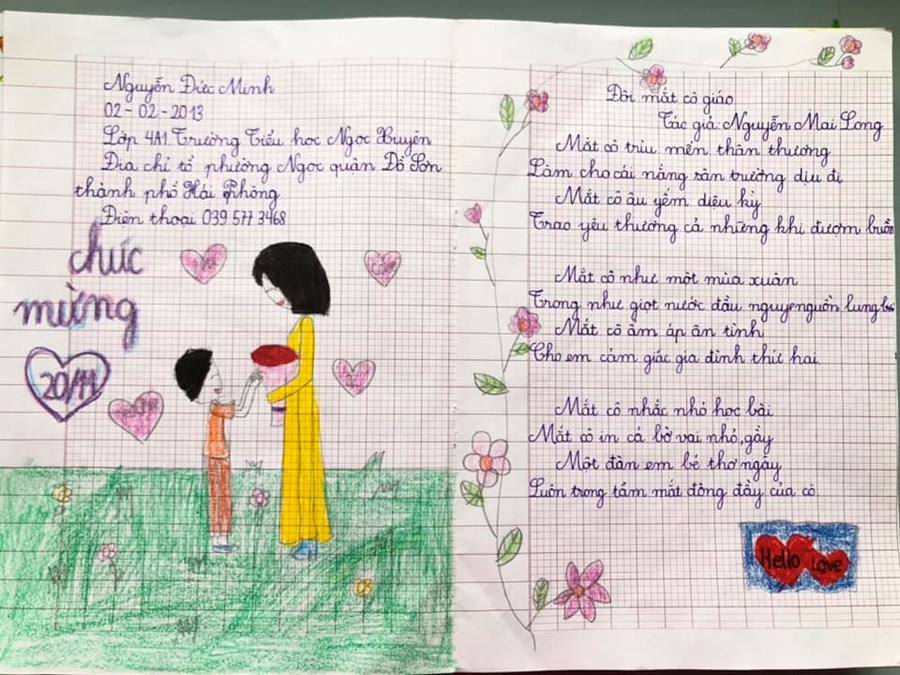 Nguyễn Đức Minh
02 - 02 - 2013
Lớp 4A1. Trường Tiểu học Ngọc Xuyên
Địa chỉ tổ phường Ngọc quận Đồ Sơn
thành phố Hải Phòng
Điện thoại 039 577 3468
chúc
mừng
20/11
Đôi mắt cô giáo
Tác giả: Nguyễn Mai Long
Mắt cô trìu mến thân thương
Làm cho cái nắng sân trường dịu đi
Mắt cô âu yếm diệu kỳ
Trao yêu thương cả những khi đượm buồn
Mắt cô như một mùa xuân
Trong như giọt nước đầu nguyenguồn lung
Mắt cô ấm áp ân tình
Cho em cảm giác gia đình thứ hai
Mắt cô nhắc nhỏ học bài
Mắt cô in cả bờ vai nhỏ, gầy
Một đàn em bé thơ ngây
Luôn trong tầm mắt đông đầy của cô
Hello Love